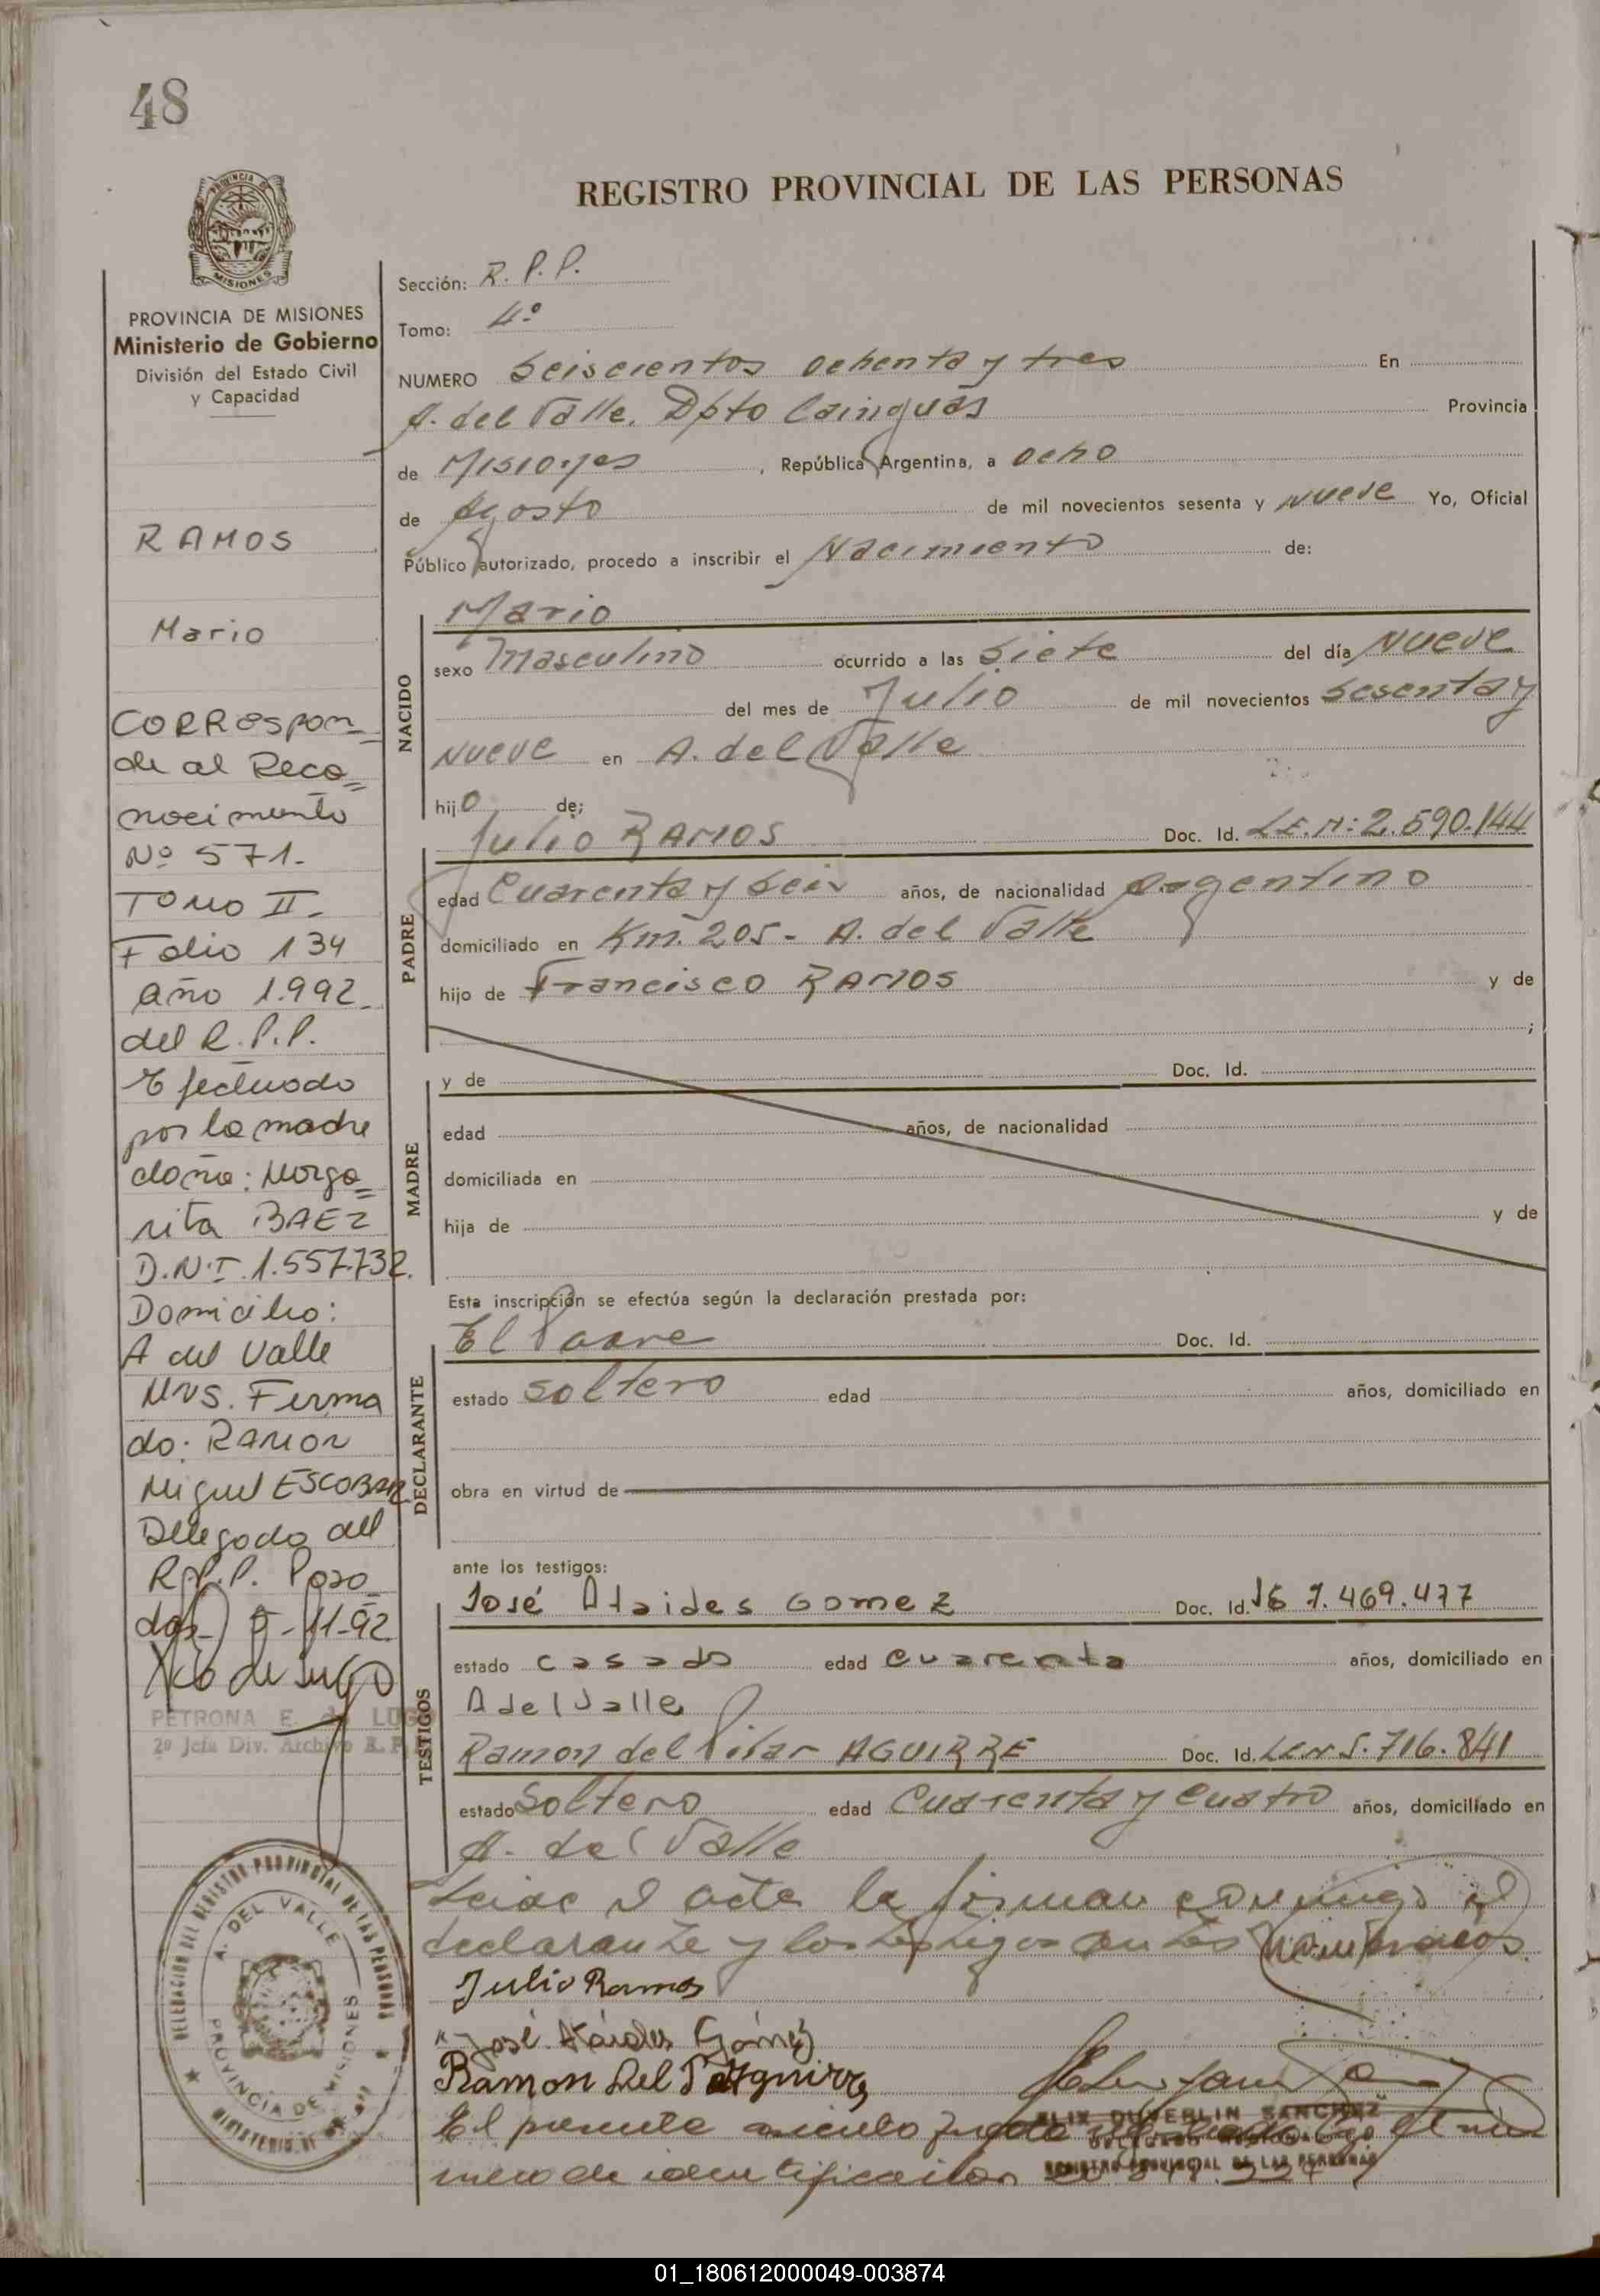 48
REGISTRO PROVINCIAL DE LAS PERSONAS
PROVINCIA DE
MISIONES
PROVINCIA DE MISIONES
Ministerio de Gobierno
División del Estado Civil
y Capacidad
RAMOS
Mario
CORRespon=
de al Reco=
nocimiento
Nº 571.
Tomo II.
Folio 134
año 1.992.
del R.P.P.
Efectuado
por la madre
doña: Marga=
rita BAEZ
D.N.I. 1.557.732.
Domicilio:
A del Valle
Mns. Firma
do: RAMON
Miguel ESCOBAR
Delegado del
R.P.P. Posa
das) 5-11-92.
PETRONA E. de LUGO
2º Jefa Div. Archivo R.P.
DELEGACION DEL REGISTRO PROVINCIAL DE LAS PERSONAS
A. DEL VALLE
PROVINCIA DE MISIONES
MINISTERIO DE
Sección: R.P.P.
Tomo: 4º
NUMERO Seiscientos ochenta y tres En
A. del Valle. Dpto Cainguás Provincia
de Misiones, República Argentina, a ocho
de Agosto de mil novecientos sesenta y nueve Yo, Oficial
Público autorizado, procedo a inscribir el Nacimiento de:
NACIDO
Mario
sexo Masculino ocurrido a las siete del día Nueve
del mes de Julio de mil novecientos sesenta y
Nueve en A. del Valle
hijo de;
PADRE
Julio RAMOS Doc. Id. L.E.Nº: 2.590.144
edad Cuarenta y seis años, de nacionalidad argentino
domiciliado en Km. 205- A. del Valle
hijo de Francisco RAMOS y de
;
MADRE
y de Doc. Id.
edad años, de nacionalidad
domiciliada en
hija de y de
Esta inscripción se efectúa según la declaración prestada por:
DECLARANTE
El Padre Doc. Id.
estado soltero edad años, domiciliado en
obra en virtud de
ante los testigos:
TESTIGOS
José Ataides Gomez Doc. Id. 7.469.477
estado casado edad cuarenta años, domiciliado en
A del Valle
Ramon del Pilar AGUIRRE Doc. Id. L.E.Nº 5.716.841
estado Soltero edad Cuarenta y cuatro años, domiciliado en
A. del Valle
Leida el acta la firman conmigo el
declarante y los testigos antes nombrados.
Julio Ramos
José Ataides Gómez
Ramon Del P Aguirre
FELIX DUVERLIN SANCHEZ
DELEGADO
REGISTRO PROVINCIAL DE LAS PERSONAS
El presente asiento el nú
mero de identificación
01_180612000049-003874